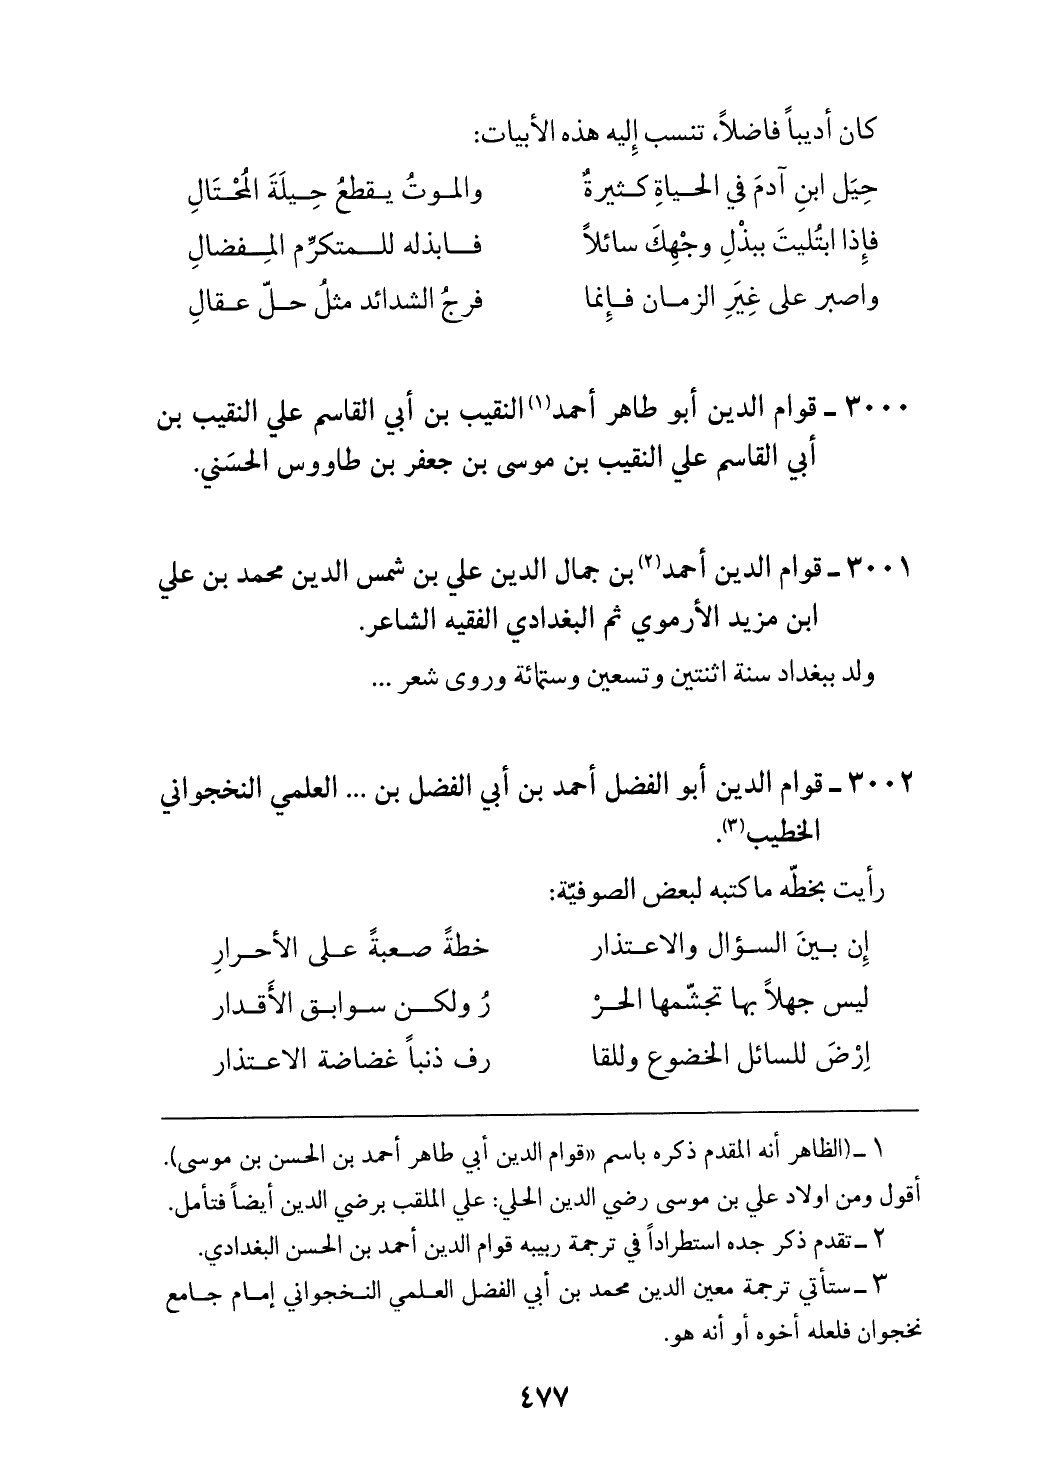 كان أديباً فاضلاً، تنسب إِليه هذه الأبيات:
حِيَل ابنِ آدمَ في الحياةِ كثيرةٌ والموتُ يقطعُ حِيلَةَ المُحْتَالِ
فإِذا ابتُليتَ ببذْلِ وجْهِكَ سائلاً فابذله للمتكرِّم المِفضالِ
واصبر على غِيَرِ الزمان فإِنما فرجُ الشدائد مثلُ حلّ عقالِ
٣٠٠٠ ـ قوام الدين أبو طاهر أحمد(١) النقيب بن أبي القاسم علي النقيب بن
أبي القاسم علي النقيب بن موسى بن جعفر بن طاووس الحسَني.
٣٠٠١ ـ قوام الدين أحمد(٢) بن جمال الدين علي بن شمس الدين محمد بن علي
ابن مزيد الأرموي ثم البغدادي الفقيه الشاعر.
ولد ببغداد سنة اثنتين وتسعين وستمائة وروى شعر ...
٣٠٠٢ ـ قوام الدين أبو الفضل أحمد بن أبي الفضل بن ... العلمي النخجواني
الخطيب(٣).
رأيت بخطّه ماكتبه لبعض الصوفيّة:
إِن بينَ السؤال والاعتذار خطةً صعبةً على الأحرارِ
ليس جهلاً بها تجشّمها الحرْ رُ ولكن سوابق الأَقدار
اِرْضَ للسائل الخضوع وللقا رف ذنباً غضاضة الاعتذار
١ ـ (الظاهر أنه المقدم ذكره باسم «قوام الدين أبي طاهر أحمد بن الحسن بن موسى).
أقول ومن اولاد علي بن موسى رضي الدين الحلي: علي الملقب برضي الدين أيضاً فتأمل.
٢ ـ تقدم ذكر جده استطراداً في ترجمة ربيبه قوام الدين أحمد بن الحسن البغدادي.
٣ ـ ستأتي ترجمة معين الدين محمد بن أبي الفضل العلمي النخجواني إمام جامع
نخجوان فلعله أخوه أو أنه هو.
٤٧٧